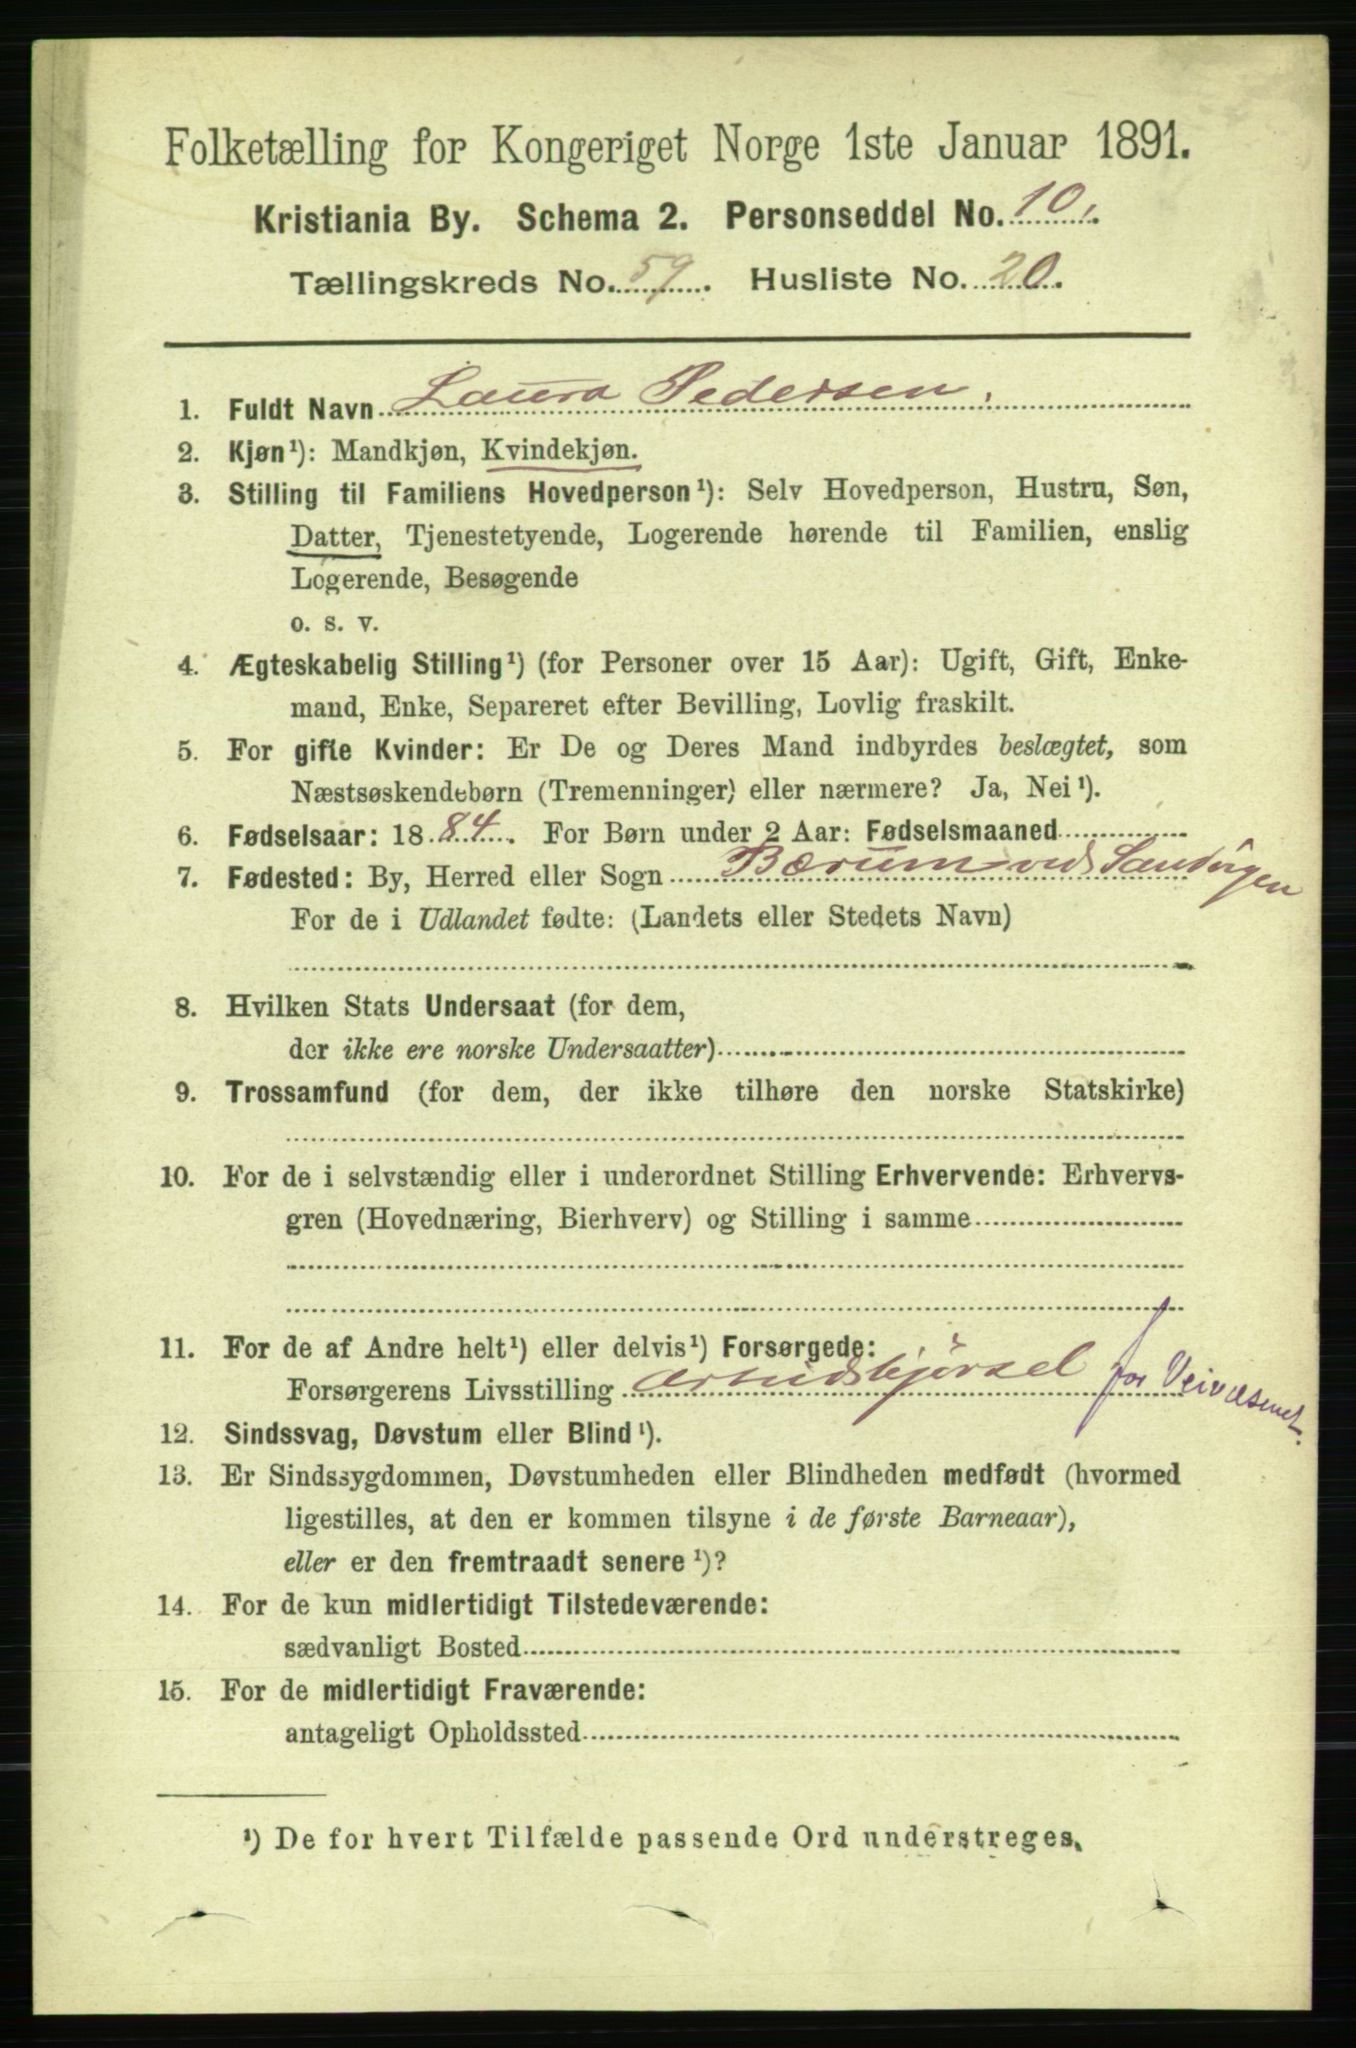 Folketælling for Kongeriget Norge 1ste Januar 1891.
Kristiania By. Schema 2. Personseddel No. 10.
Tællingskreds No. 59. Husliste No. 20.
1. Fuldt Navn Laura Pedersen.
2. Kjøn¹): Mandkjøn, Kvindekjøn.
3. Stilling til Familiens Hovedperson¹): Selv Hovedperson, Hustru, Søn,
Datter, Tjenestetyende, Logerende hørende til Familien, enslig
Logerende, Besøgende
o. s. v.
4. Ægteskabelig Stilling¹) (for Personer over 15 Aar): Ugift, Gift, Enke-
mand, Enke, Separeret efter Bevilling, Lovlig fraskilt.
5. For gifte Kvinder: Er De og Deres Mand indbyrdes beslægtet, som
Næstsøskendebørn (Tremenninger) eller nærmere? Ja, Nei¹).
6. Fødselsaar: 1884. For Børn under 2 Aar: Fødselsmaaned
7. Fødested: By, Herred eller Sogn Bærum ved
For de i Udlandet fødte: (Landets eller Stedets Navn)
8. Hvilken Stats Undersaat (for dem,
der ikke ere norske Undersaatter)
9. Trossamfund (for dem, der ikke tilhøre den norske Statskirke)
10. For de i selvstændig eller i underordnet Stilling Erhvervende: Erhvervs-
gren (Hovednæring, Bierhverv) og Stilling i samme
11. For de af Andre helt¹) eller delvis¹) Forsørgede:
Forsørgerens Livsstilling Arbeidskjørsel for Veivæsenet.
12. Sindssvag, Døvstum eller Blind¹).
13. Er Sindssygdommen, Døvstumheden eller Blindheden medfødt (hvormed
ligestilles, at den er kommen tilsyne i de første Barneaar),
eller er den fremtraadt senere¹)?
14. For de kun midlertidigt Tilstedeværende:
sædvanligt Bosted
15. For de midlertidigt Fraværende:
antageligt Opholdssted
¹) De for hvert Tilfælde passende Ord understreges.